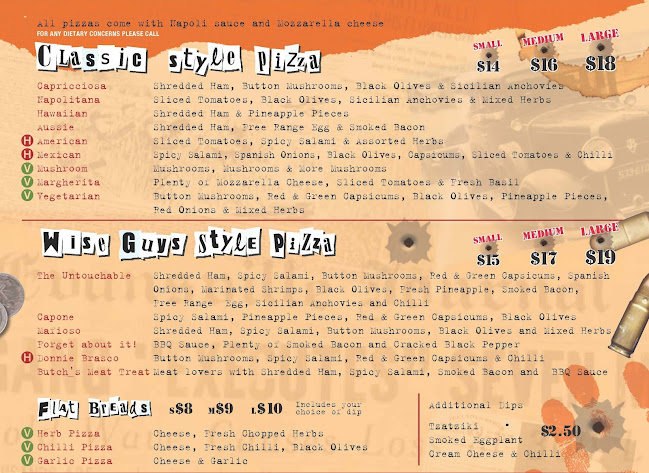 All pizzas come with Napoli sauce and Mozzarella cheese
FOR ANY DIETARY CONCERNS PLEASE CALL
Classic style pizza SMALL $14 MEDIUM $16 LARGE $18
Capricciosa Shredded Ham, Button Mushrooms, Black Olives & Sicilian Anchovies
Napolitana Sliced Tomatoes, Black Olives, Sicilian Anchovies & Mixed Herbs
Hawaiian Shredded Ham & Pineapple Pieces
Aussie Shredded Ham, Free Range Egg & Smoked Bacon
H American Sliced Tomatoes, Spicy Salami & Assorted Herbs
H Mexican Spicy Salami, Spanish Onions, Black Olives, Capsicums, Sliced Tomatoes & Chilli
V Mushroom Mushrooms, Mushrooms & More Mushrooms
V Margherita Plenty of Mozzarella Cheese, Sliced Tomatoes & Fresh Basil
V Vegetarian Button Mushrooms, Red & Green Capsicums, Black Olives, Pineapple Pieces,
Red Onions & Mixed Herbs
Wise Guys Style Pizza SMALL $15 MEDIUM $17 LARGE $19
The Untouchable Shredded Ham, Spicy Salami, Button Mushrooms, Red & Green Capsicums, Spanish
Onions, Marinated Shrimps, Black Olives, Fresh Pineapple, Smoked Bacon,
Free Range Egg, Sicilian Anchovies and Chilli
Capone Spicy Salami, Pineapple Pieces, Red & Green Capsicums, Black Olives
Mafioso Shredded Ham, Spicy Salami, Button Mushrooms, Black Olives and Mixed Herbs
Forget about it! BBQ Sauce, Plenty of Smoked Bacon and Cracked Black Pepper
H Donnie Brasco Button Mushrooms, Spicy Salami, Red & Green Capsicums & Chilli
Butch's Meat Treat Meat lovers with Shredded Ham, Spicy Salami, Smoked Bacon and BBQ Sauce
Flat Breads S$8 M$9 L$10 Includes your
choice of dip
V Herb Pizza Cheese, Fresh Chopped Herbs
V Chilli Pizza Cheese, Fresh Chilli, Black Olives
V Garlic Pizza Cheese & Garlic
Additional Dips
Tzatziki
Smoked Eggplant $2.50
Cream Cheese & Chilli